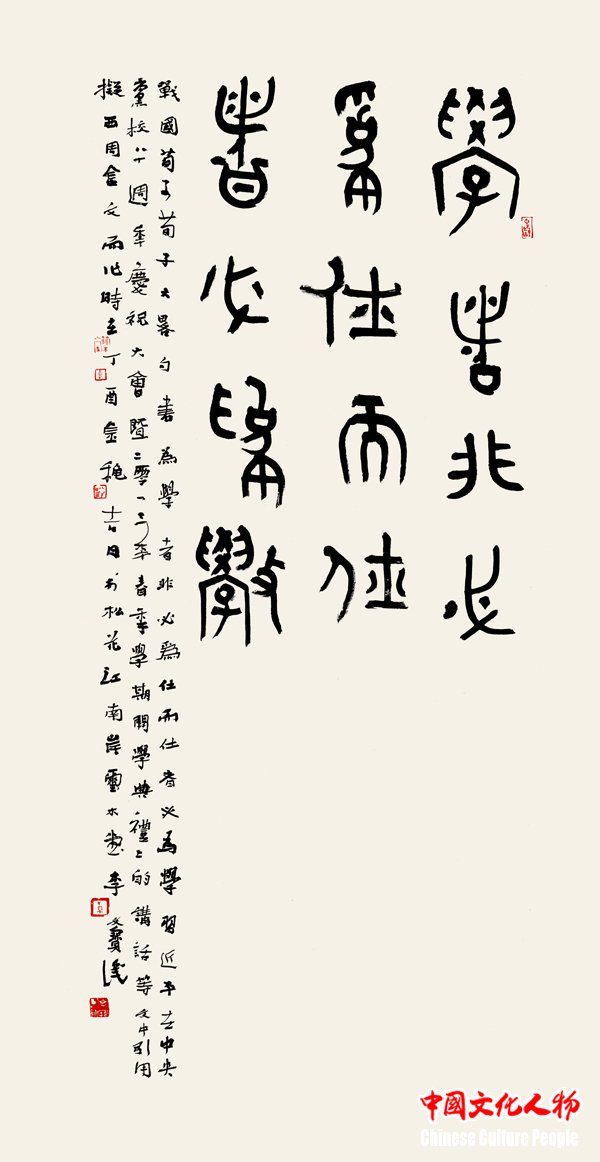 學者非必
爲仕而仕
者必爲斆
戰國荀子荀子大畧句書為學者非必為仕而仕者必為學習近平在中央
黨校八十週年慶祝大會暨二零一三年春季學期開學典禮上的講話等文中引用
擬西周金文而作時在丁酉金穐吉日於松花江南岸靈木李文寶識
中国文化人物
Chinese Culture People